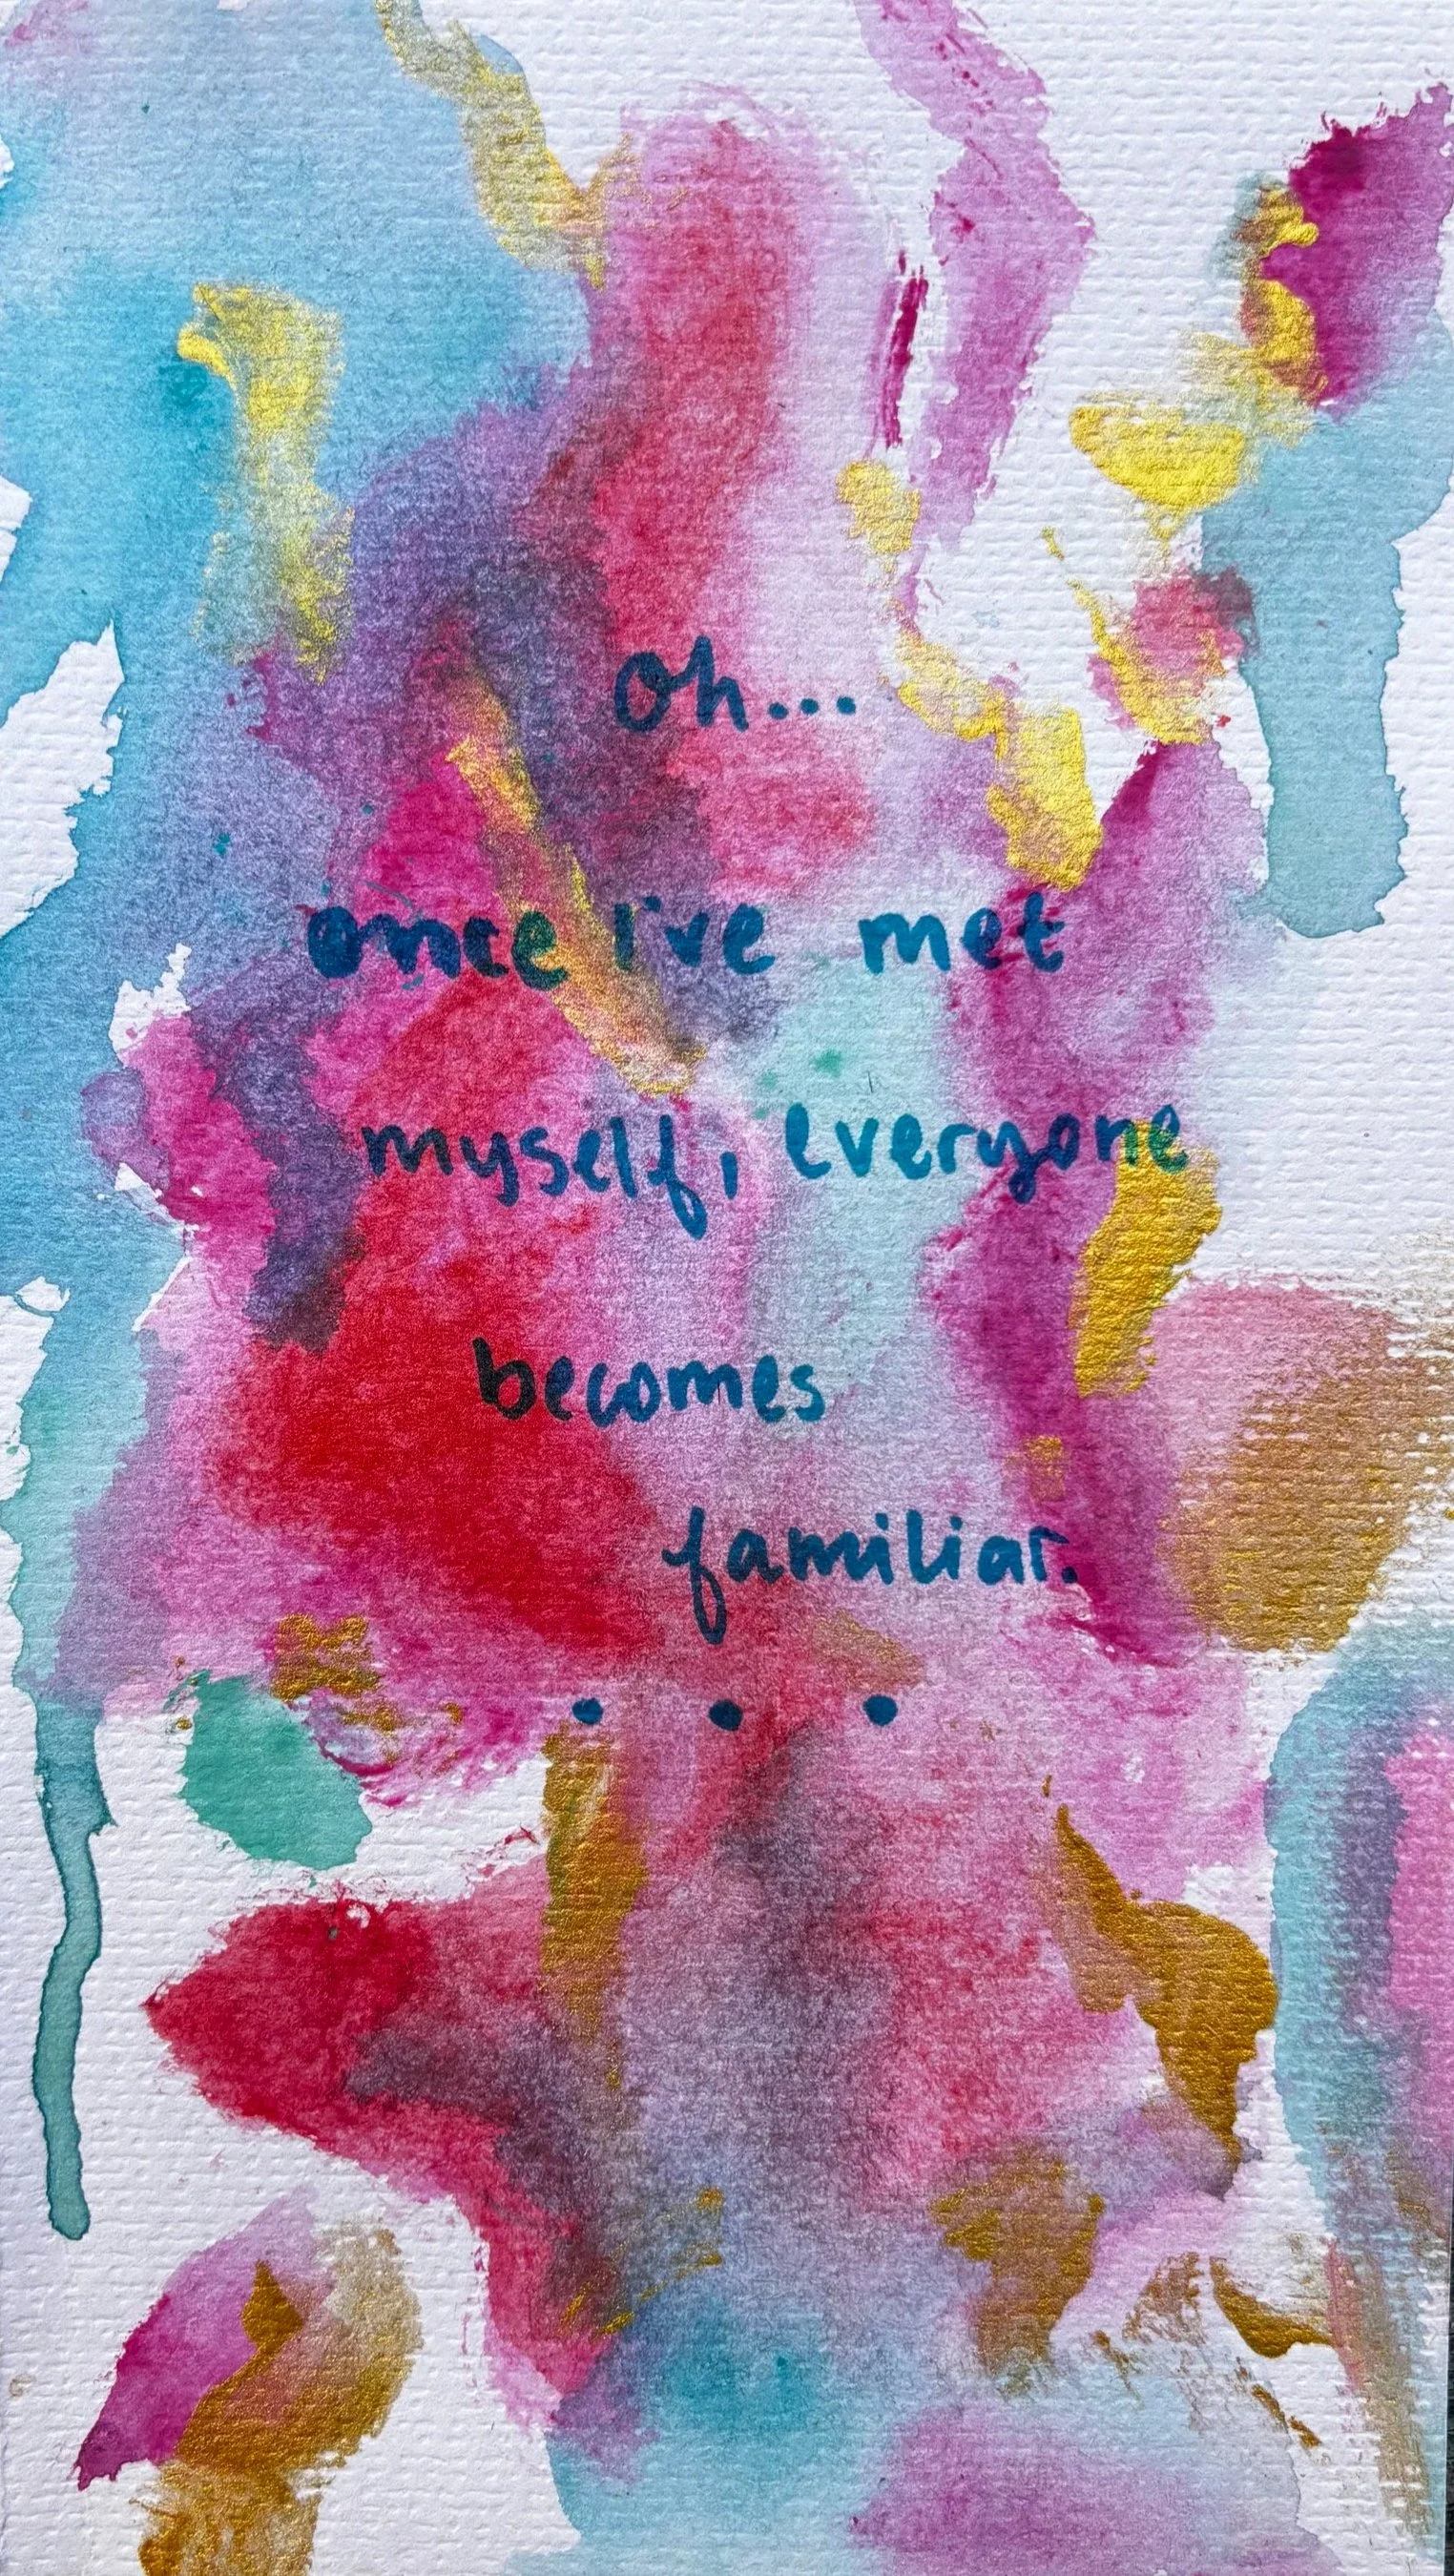 oh...
once i've met
myself, everyone
becomes
familiar.
...